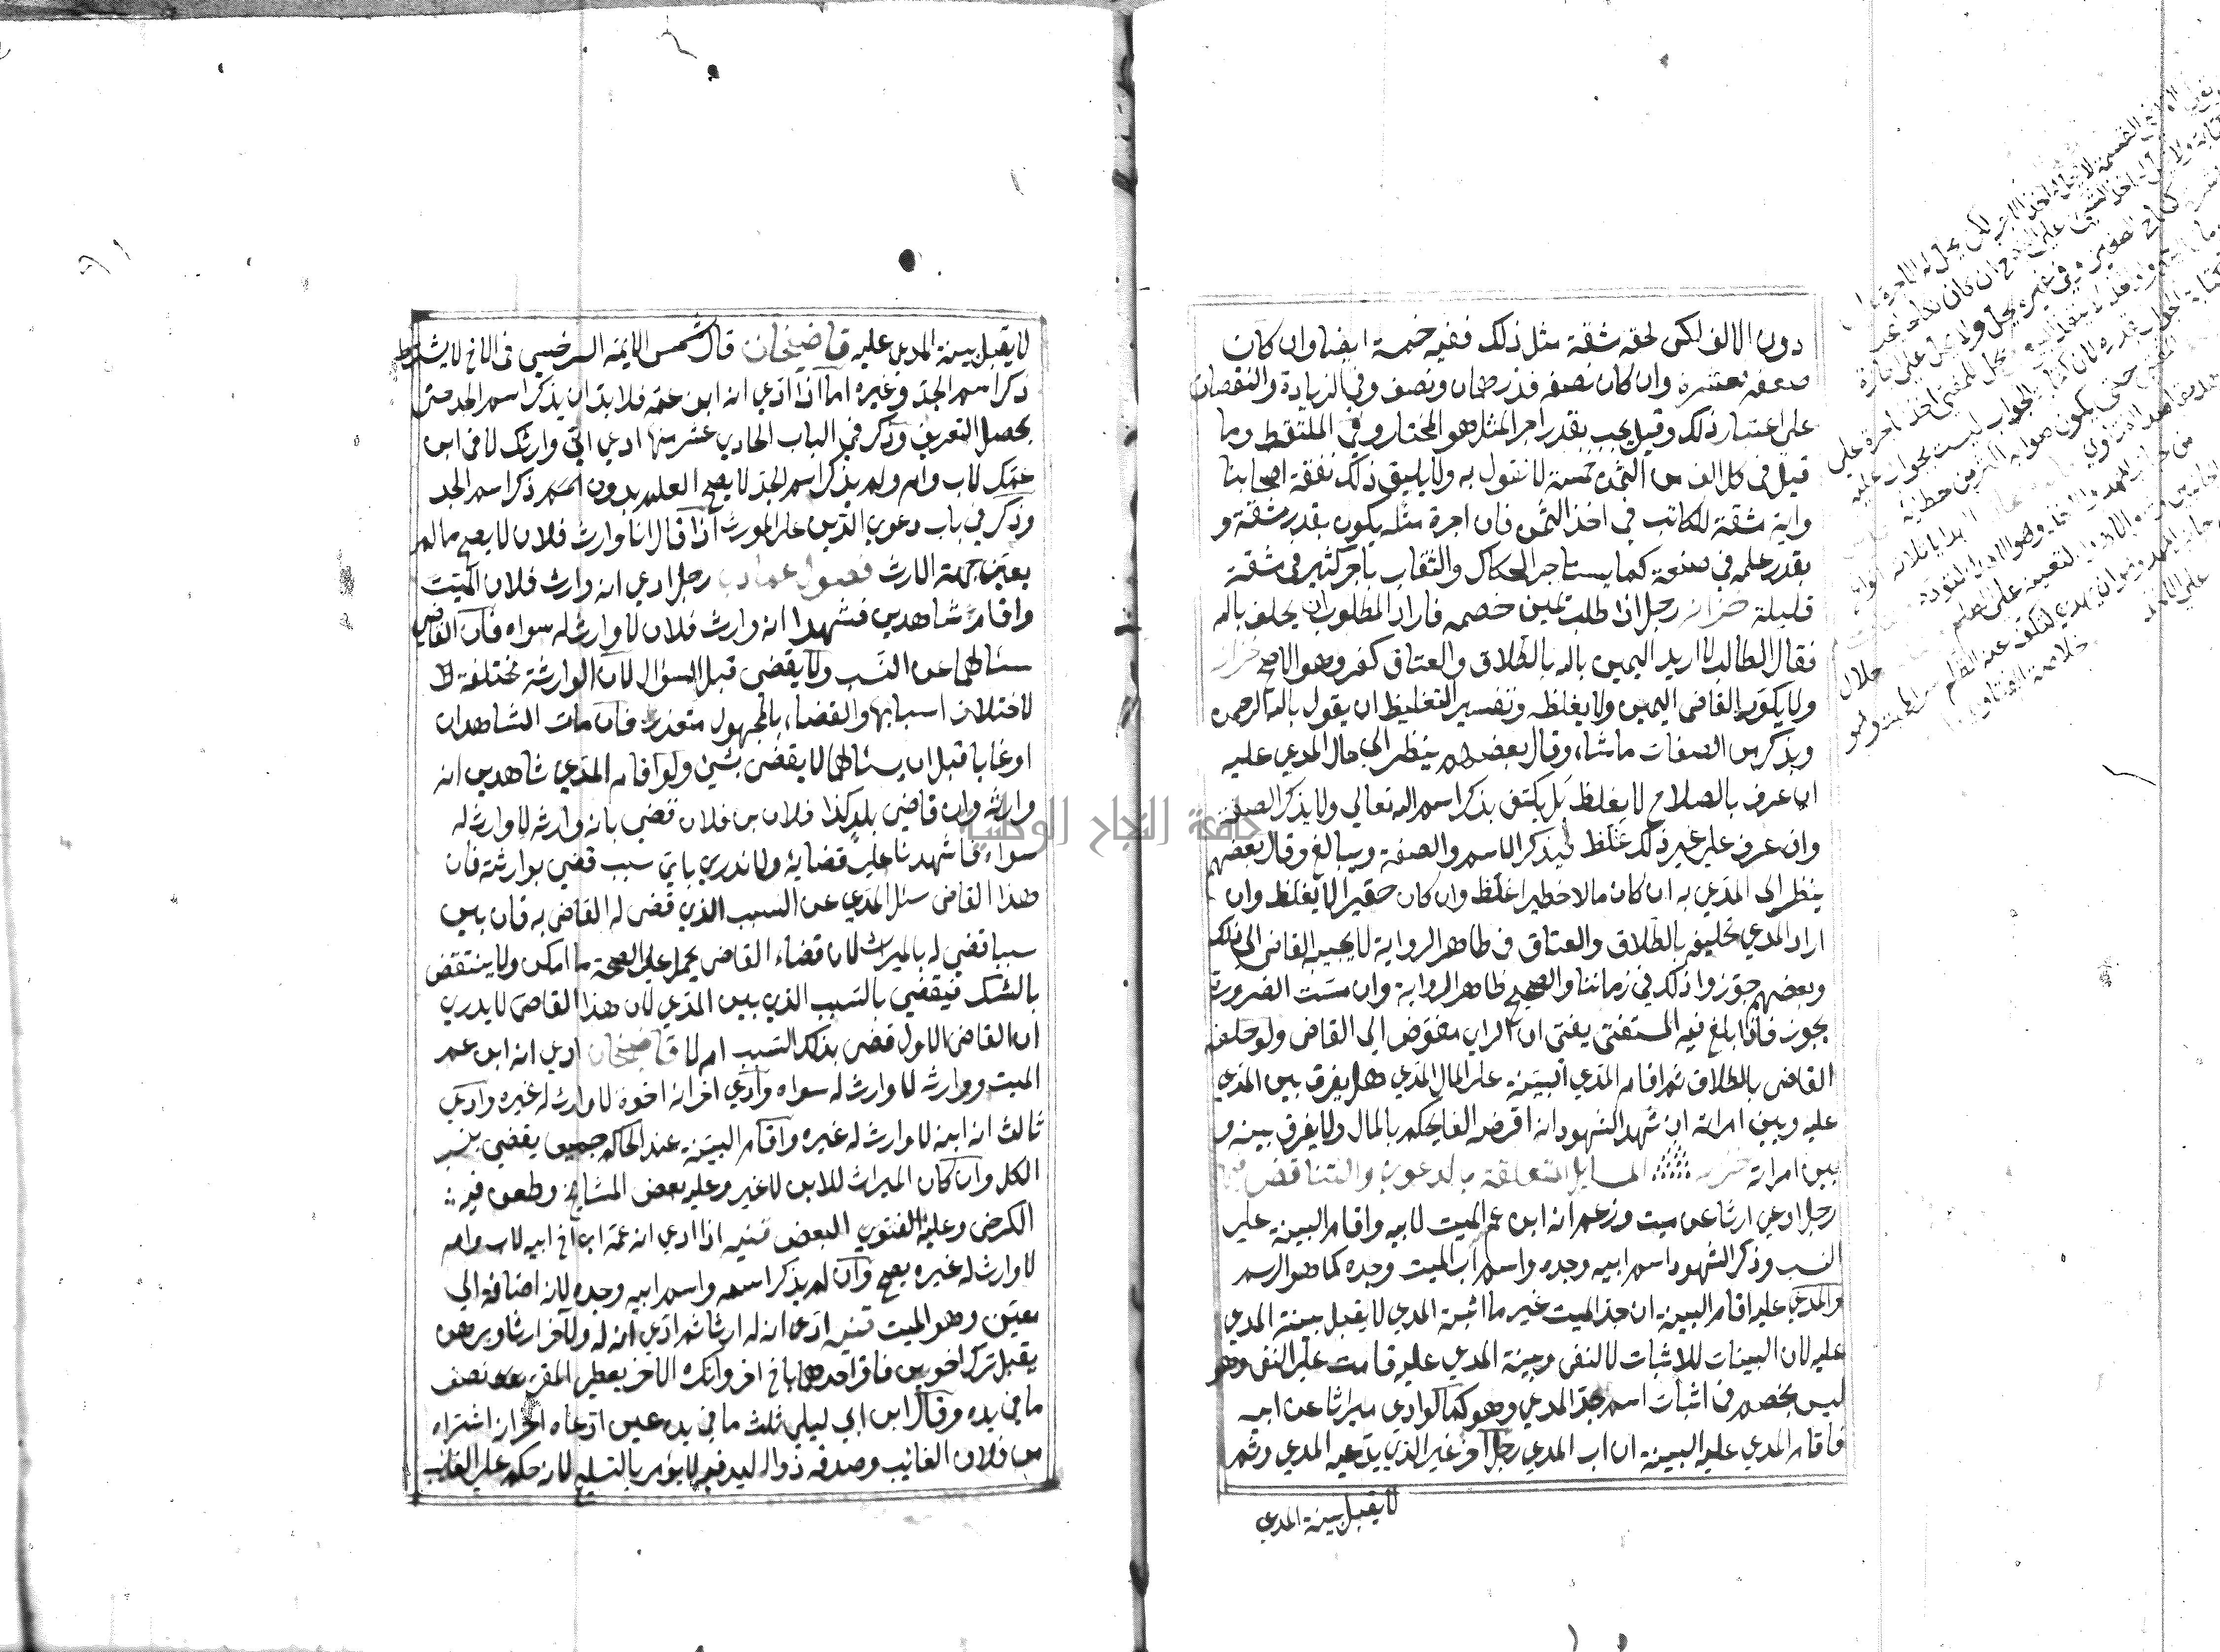 دون الالف لكن لحقه شقة مثل ذلك ففيه خمسة ايضا وان كان
ضعفه فعشرة وان كان نصفه فدرهمان ونصف وفي الزيادة والنقصان
علي اعتبار ذلك وقيل يجب بقدر اجر المثل هو المختار وفي الملتقط وما
قيل في كل الف من الثمن خمسة لا نقول به ولا يليق ذلك بفقه اصحابنا
واية مشقة للكاتب في اخذ الثمن فان اجرة مثله يكون بقدر مشقته و
بقدر عمله في صنعته كما يستاجر الحكاك والثقاب باجر كثير في مشقة
قليلة خزانه رجل اذا طلب يمين خصمه فاراد المطلوب ان يحلف بالله
فقال الطالب لا اريد اليمين بالله بالطلاق والعتاق كفر وهو الاصح خزانه
ولا يكرر القاضي اليمين ولا يغلظه وتفسير التغليظ ان يقول بالله الرحمن
ويذكر من الصفات ما شاء وقال بعضهم ينظر الي حال المدعي عليه
ان عرف بالصلاح لا يغلظ بل يكتفي بذكر اسم الله تعالي ولا يذكر الصفة
وان عرف علي غير ذلك غلظ فيذكر الاسم والصفة ويبالغ وقال بعضهم
ينظر الى المدعي به ان كان مالا خطيرا غلظ وان كان حقيرا لا يغلظ وان
اراد المدعي تحليفه بالطلاق والعتاق في ظاهر الرواية لا يجيبه القاضي الي ذلك
وبعضهم جوزوا ذلك في زماننا والصحيح ظاهر الرواية وان مست الضرورت
يجوز فاذا بالغ فيه المستفتي يفتي ان الراي مفوض الي القاضي ولو حلفه
القاضي بالطلاق ثم اقام المدعي البينة على المال المدعي هل يفرق بين المدعي
عليه وبين امراته ان شهد الشهود انه اقرض الفا يحكم بالمال ولا يفرق بينه و
بين امراته خزانه المسايل المتعلقة بالدعوي والتناقض فيها
رجل ادعي ارثا عن ميت وزعم انه ابن عم الميت لابيه واقام البينة علي
النسب وذكر الشهود اسم ابيه وجده واسم اب الميت وجده كما هو الرسم
والمدعي عليه اقام البينة ان جد الميت غير ما اثبته المدعي لا يقبل بينة المدعي
عليه لان البينات للاثبات لا للنفي وبينة المدعي عليه قامت على النفي وهو
ليس بخصم في اثبات اسم جد المدعي وهو كما لو ادعي ميراثا عن ابيه
فاقام المدعي عليه البينة ان اب المدعي رجل آخر غير الذي يدعيه المدعي وثم
لا يقبل بينة المدعي
لا يقبل بينة المدعي عليه قاضيخان قال شمس الايمة السرخسي في الاخ لا يشترط
ذكر اسم الجد وغيره اما اذا ادعي انه ابن عمه فلا بد ان يذكر اسم الجد حتي
يحصل التعريف وذكر في الباب الحادي عشر منها ادعي اني وارثك لاني ابن
عمك لاب وام ولم يذكر اسم الجد لا يصح العلم بدون اسم ذكر اسم الجد
وذكر في باب دعوي الدين على المورث اذا قال انا وارث فلان لا يصح ما لم
يعين جهة الارث فصول عمادي رجل ادعي انه وارث فلان الميت
واقام شاهدين فشهدا انه وارث فلان لا وارث له سواه فان القاضي
يسئالهما عن النسب ولا يقضي قبل السؤال لان الوارثة مختلفة
لاختلاف اسبابها والقضاء بالمجهول متعذر فان مات الشاهدان
او غابا قبل ان يسئالهما لا يقضي بشئ ولو اقام المدعي شاهدين انه
وارثه وان قاضي بلد كذا فلان بن فلان قضي بانه وارثه لا وارث له
سواه فاشهدنا علي قضايه ولا ندري باي سبب قضي بوارثة فان
هذا القاضي سئل المدعي عن السبب الذي قضي له القاضي به فان بين
سببا قضي له بالميراث لان قضاء القاضي يحمل علي الصحة ما امكن ولا ينتقض
بالشك فيقضي بالسبب الذي بين المدعي لان هذا القاضي لا يدري
ان القاضي الاول قضي بذلك السبب ام لا قاضيخان ادعي انه ابن عم
الميت ووارثه لا وارث له سواه وادعي اخر انه اخوه لا وارث له غيره وادعي
ثالث انه ابنه لا وارث له غيره واقام البينة عند الحاكم جميعا يقضي بنسب
الكل وان كان الميراث للابن لا غير وعليه بعض المشايخ وطعن فيه
الكرخي وعليه الفتوي البعض قنيه اذا ادعي انه عمه ابن اخ ابيه لاب وام
لا وارث له غيره يصح وان لم يذكر اسمه واسم ابيه وجده لانه اضافه الي
معين وهو الميت قنيه ادعي انه له ارثا ثم ادعي انه له ولآخر ارثا وبرهن
يقبل ترك اخوين فاقر احدهما باخ اخر وانكره الاخر يعطي المقر نصف
ما في يده وقال ابن ابي ليلي ثلث ما في يده عين ادعاه اخر انه اشتراه
من فلان الغائب وصدقه ذو اليد فيه لا يؤمر بالتسليم لانه حكم علي الغائب
جامعة النجاح الوطنية